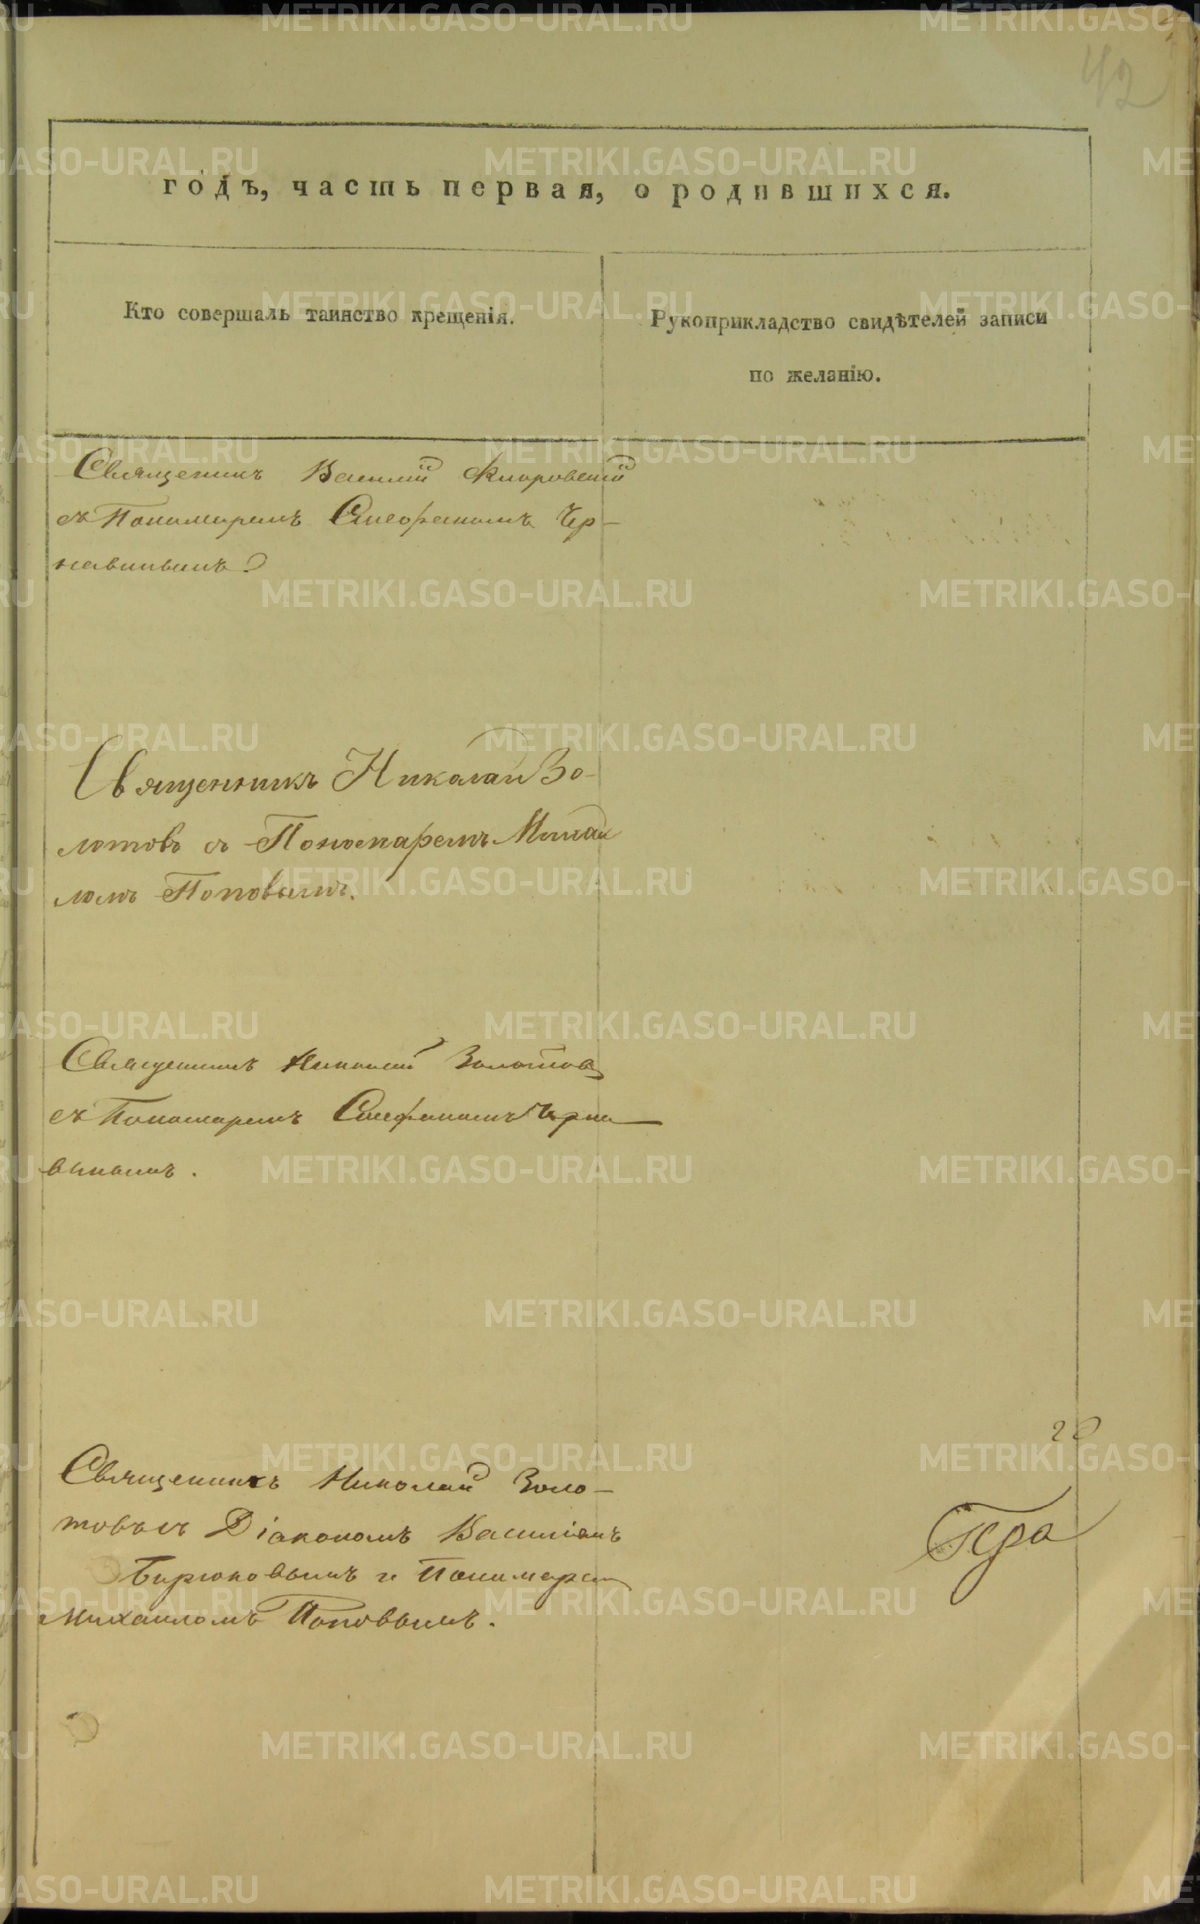 42
годъ, часть первая, о родившихся.
Кто совершалъ таинство крещенія.
Рукоприкладство свидѣтелей записи
по желанію.
Священикъ Василій Флоровскій
съ Пономаремъ Стефаномъ Чер-
навинымъ.
Священникъ Николай Зо-
лотовъ съ Пономаремъ Михаи
ломъ Поповымъ.
Священикъ Николай Золотовъ
съ Пономаремъ Стефаномъ Черна
винымъ.
Священикъ Николай Золо-
товъ съ Діакономъ Василіемъ
Бирюковымъ и Пономаремъ
Михаиломъ Поповымъ.
METRIKI.GASO-URAL.RU